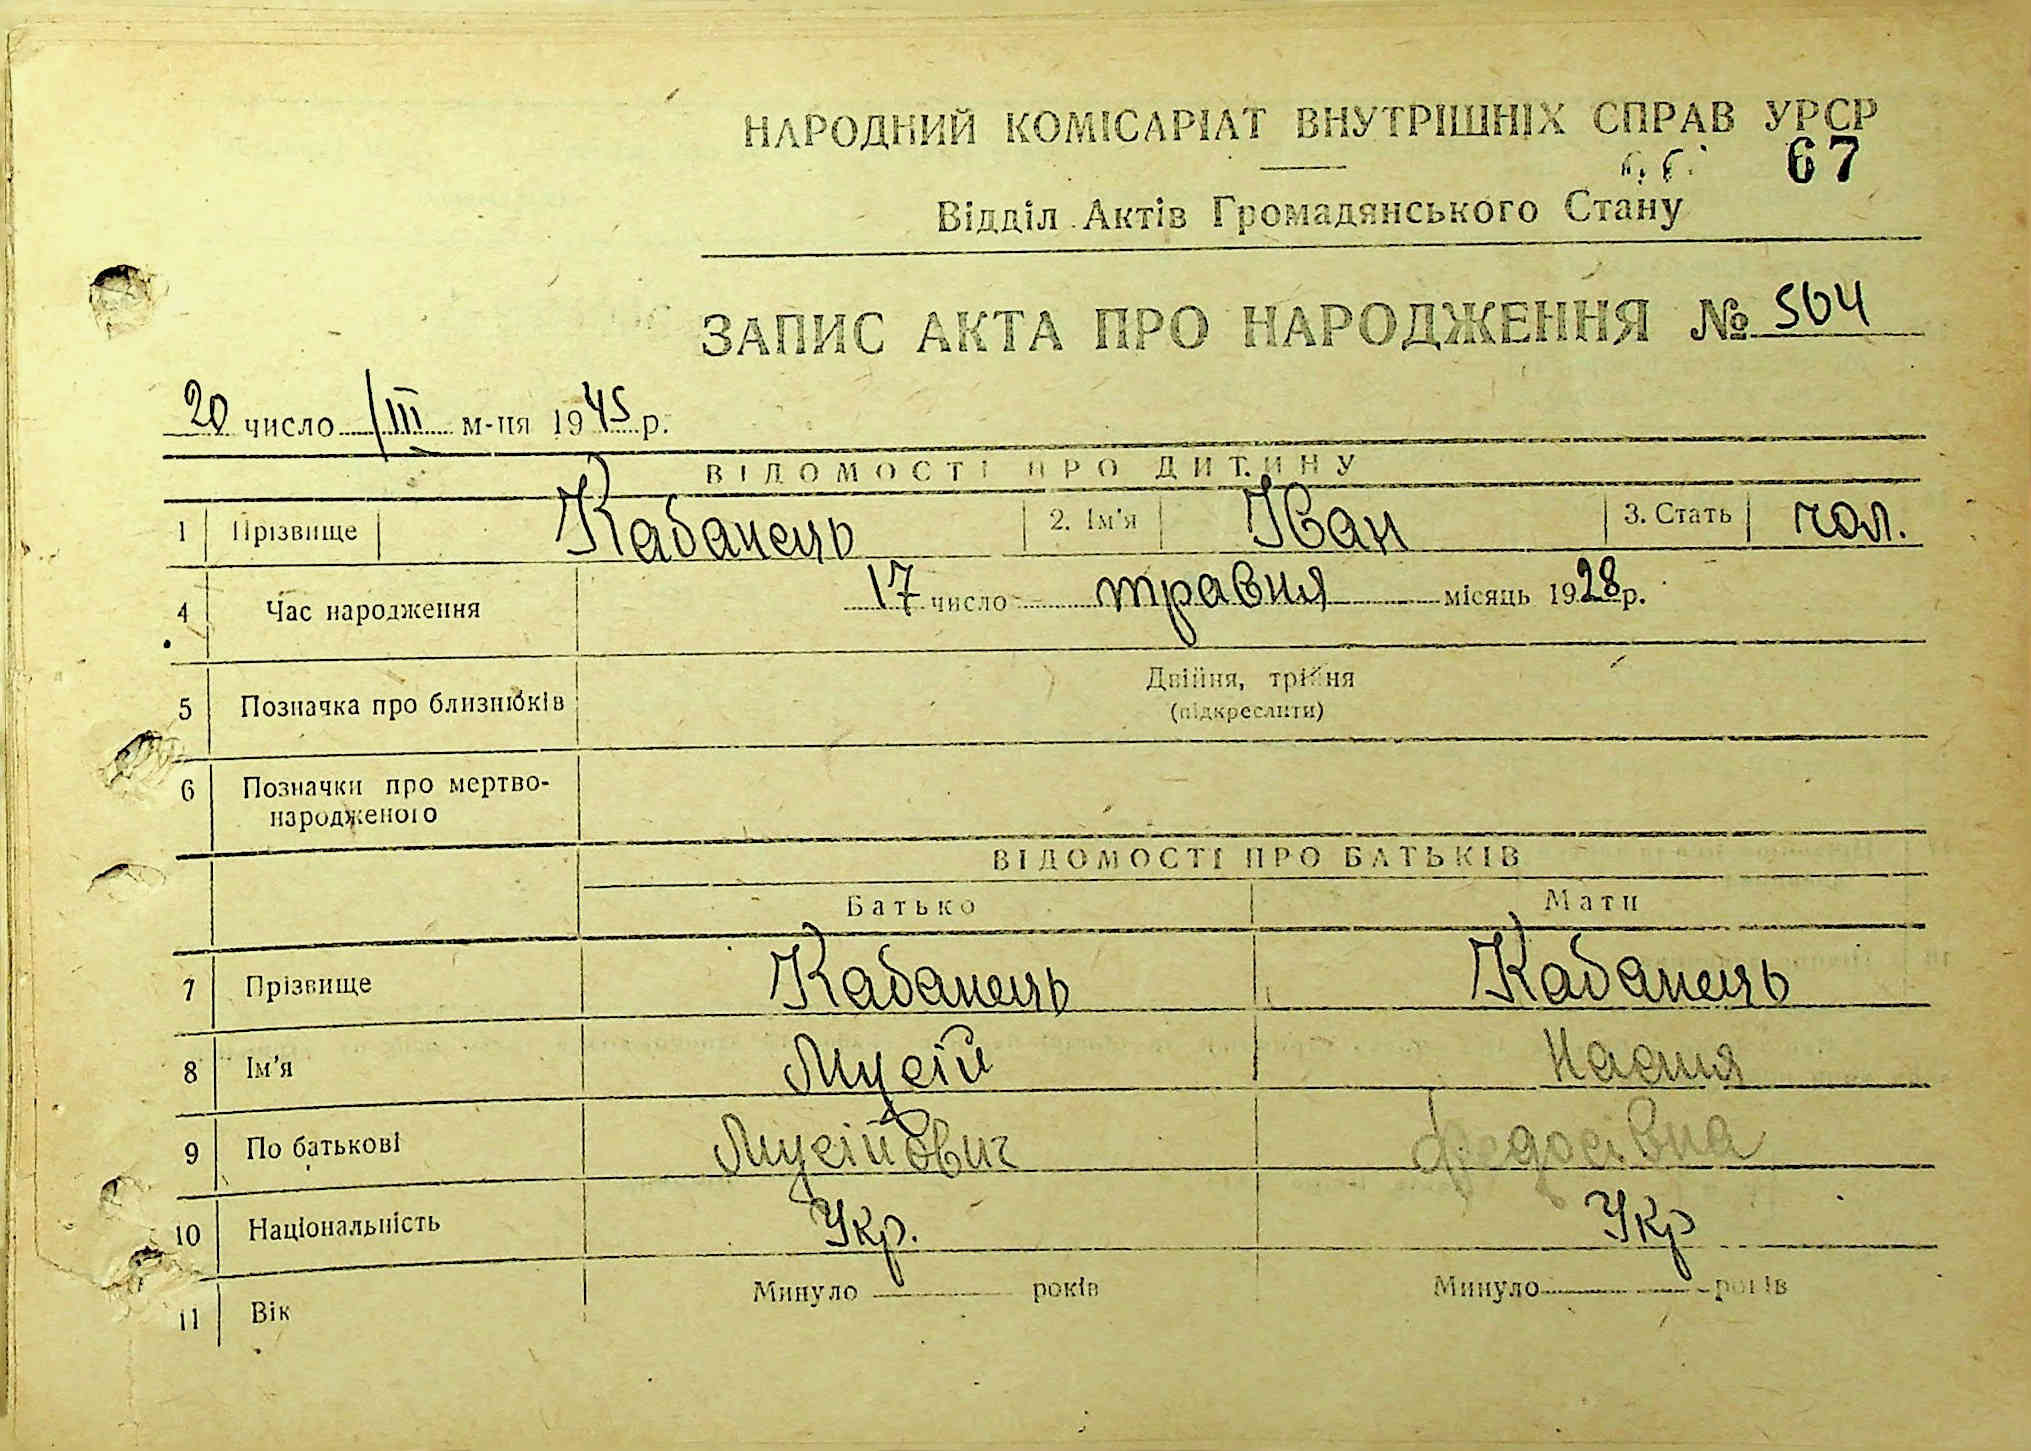 НАРОДНИЙ КОМІСАРІАТ ВНУТРІШНІХ СПРАВ УРСР
67
Відділ Актів Громадянського Стану
ЗАПИС АКТА ПРО НАРОДЖЕННЯ № 504
20 число /III м-ця 1945 р.
ВІДОМОСТІ ПРО ДИТИНУ
1 Прізвище Кабанець 2. Ім'я Іван 3. Стать чол.
4 Час народження 17 число травня місяць 1928 р.
5 Позначка про близнюків Двійня, трійня
(підкреслити)
6 Позначки про мертво-
народженого
ВІДОМОСТІ ПРО БАТЬКІВ
Батько Мати
7 Прізвище Кабанець Кабанець
8 Ім'я Мусій Настя
9 По батькові Мусійович Федосівна
10 Національність Укр. Укр
11 Вік Минуло років Минуло років